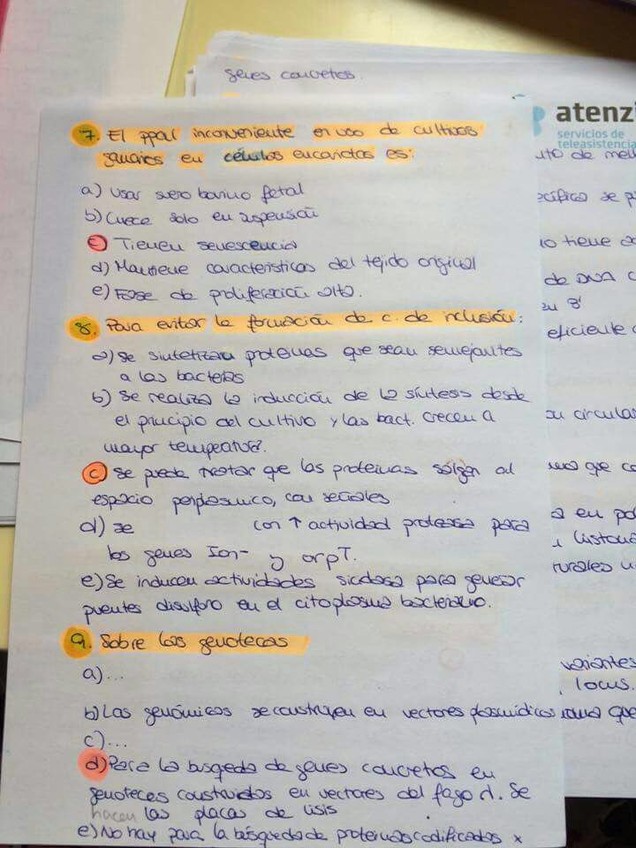 genes concretos.
atenz
servicios de
teleasistencia
7. El ppal inconveniente en uso de cultivos
primarios en células eucariotas es:
a) Usar suero bovino fetal
b) Crece solo en suspensión
c) Tienen senescencia
d) Mantiene características del tejido original
e) Fase de proliferación alta.
8. Para evitar la formación de c. de inclusión:
a) Se sintetizara proteínas que sean semejantes
a las bacterias
b) Se realiza la inducción de la síntesis desde
el principio del cultivo y las bact. crecen a
mayor temperatura.
c) Se puede tratar que las proteínas salgan al
espacio periplásmico, con señales
d) se con ↑ actividad proteasa para
los genes Ion- y orpT.
e) Se inducen actividades para generar
puentes disulfuro en el citoplasma bacteriano.
9. Sobre las genotecas
a) ...
b) Las genómicas se construyen en vectores plasmídicos
c) ...
d) Para la busqeda de genes concretos en
genotecas construidas en vectores del fago λ. Se
hacen las placas de lisis
e) No hay para la búsqueda de proteínas codificadas x
ecífico se p
lo tiene
de
eficiente
su circula
que co
a en po
variantes
locus.
que